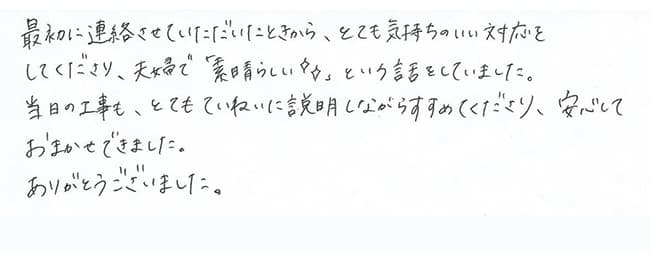 最初に連絡させていただいたときから、とても気持ちのいい対応を
してくださり、夫婦で「素晴らしい☆☆」という話をしていました。
当日の工事も、とてもていねいに説明しながらすすめてくださり、安心して
おまかせできました。
ありがとうございました。